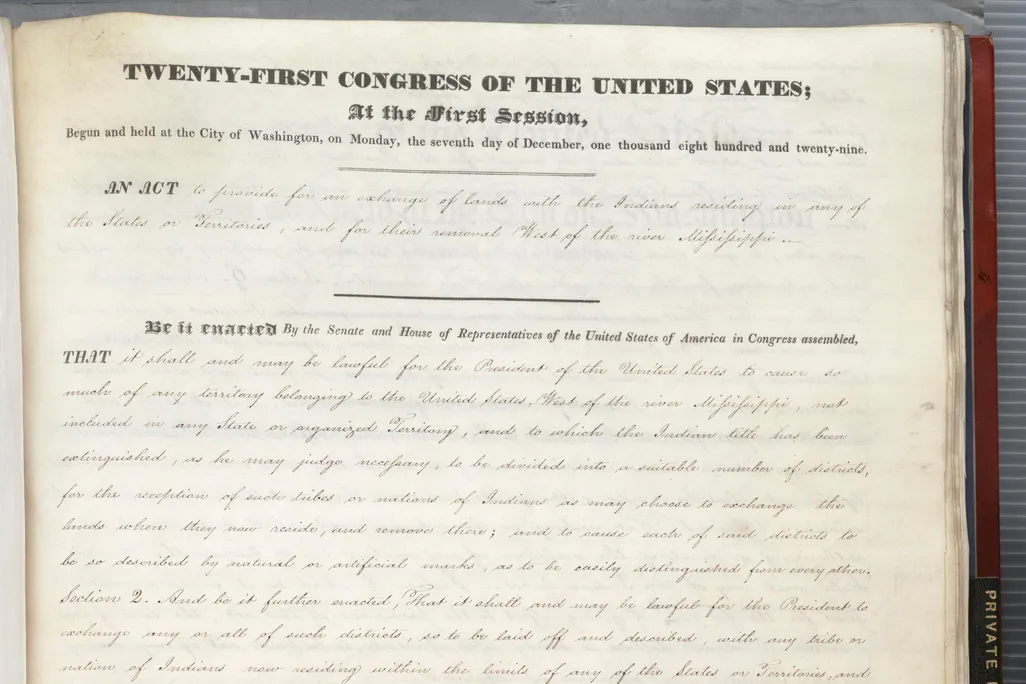 TWENTY-FIRST CONGRESS OF THE UNITED STATES;
At the First Session,
Begun and held at the City of Washington, on Monday, the seventh day of December, one thousand eight hundred and twenty-nine.
AN ACT to provide for an exchange of lands with the Indians residing in any of
the States or Territories, and for their removal West of the river Mississippi.
Be it enacted By the Senate and House of Representatives of the United States of America in Congress assembled,
THAT it shall and may be lawful for the President of the United States to cause so
much of any territory belonging to the United States, West of the river Mississippi, not
included in any State or organized Territory, and to which the Indian title has been
extinguished, as he may judge necessary, to be divided into a suitable number of districts,
for the reception of such tribes or nations of Indians as may choose to exchange the
lands where they now reside, and remove there; and to cause each of said districts to
be so described by natural or artificial marks, as to be easily distinguished from every other.
Section 2. And be it further enacted, That it shall and may be lawful for the President to
exchange any or all of such districts, so to be laid off and described, with any tribe or
nation of Indians now residing within the limits of any of the States or Territories, and
PRIVATE